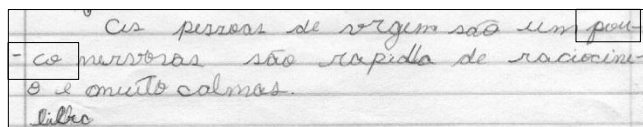 As pessoas de virgem são um pou-
-co nervosas são rapidla de raciocini-
o e muito calmas.